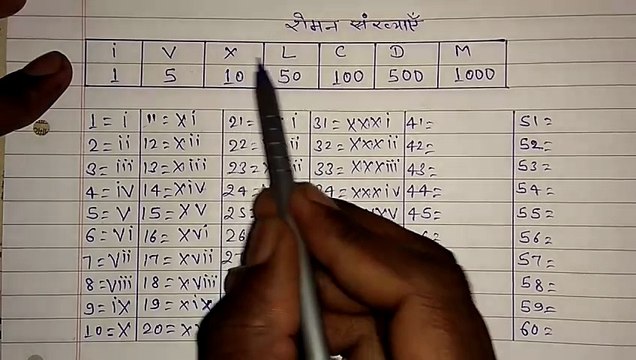 रोमन संख्याएँ
i V X L C D M
1 5 10 50 100 500 1000
1 = i 11 = xi 21 = i 31 = xxxi 41 = 51 =
2 = ii 12 = xii 22 = ii 32 = xxxii 42 = 52 =
3 = iii 13 = xiii 23 = iii 33 = xxxiii 43 = 53 =
4 = iv 14 = xiv 24 = 34 = xxxiv 44 = 54 =
5 = V 15 = XV 25 = xxxv 45 = 55 =
6 = Vi 16 = xvi 26 56 =
7 = Vii 17 = xvii 27 57 =
8 = Viii 18 = xviii 58 =
9 = iX 19 = xix 59 =
10 = X 20 = xx 60 =